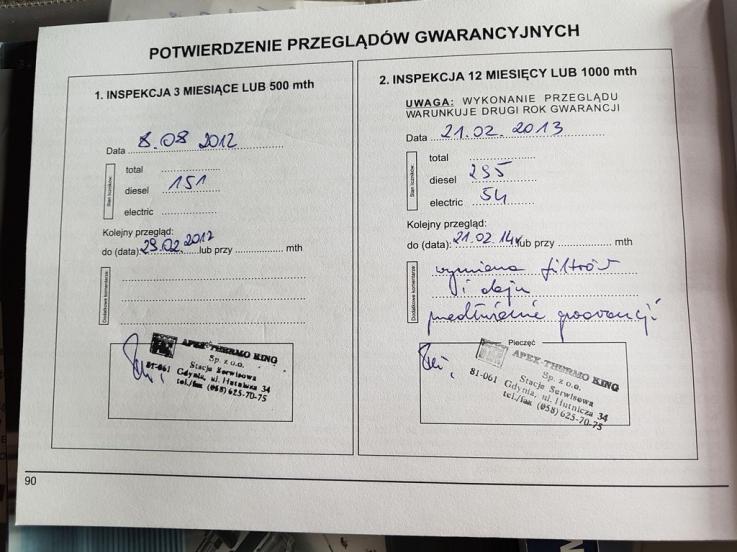 POTWIERDZENIE PRZEGLĄDÓW GWARANCYJNYCH
1. INSPEKCJA 3 MIESIĄCE LUB 500 mth
Data 8.08 2012
Stan liczników:
total
diesel 151
electric
Kolejny przegląd:
do (data): 29.02.2012 lub przy mth
Dodatkowe komentarze:
APEX-THERMO KING
Sp. z o.o.
Stacja Serwisowa
81-061 Gdynia, ul. Hutnicza 34
tel./fax (058) 625-70-75
2. INSPEKCJA 12 MIESIĘCY LUB 1000 mth
UWAGA: WYKONANIE PRZEGLĄDU
WARUNKUJE DRUGI ROK GWARANCJI
Data 21.02. 2013
Stan liczników:
total
diesel 295
electric 54
Kolejny przegląd:
do (data): 21.02.14r lub przy mth
Dodatkowe komentarze:
wymiana filtrów
i oleju
przedłużenie gwarancji
Pieczęć
APEX-THERMO KING
Sp. z o.o.
Stacja Serwisowa
81-061 Gdynia, ul. Hutnicza 34
tel./fax (058) 625-70-75
90